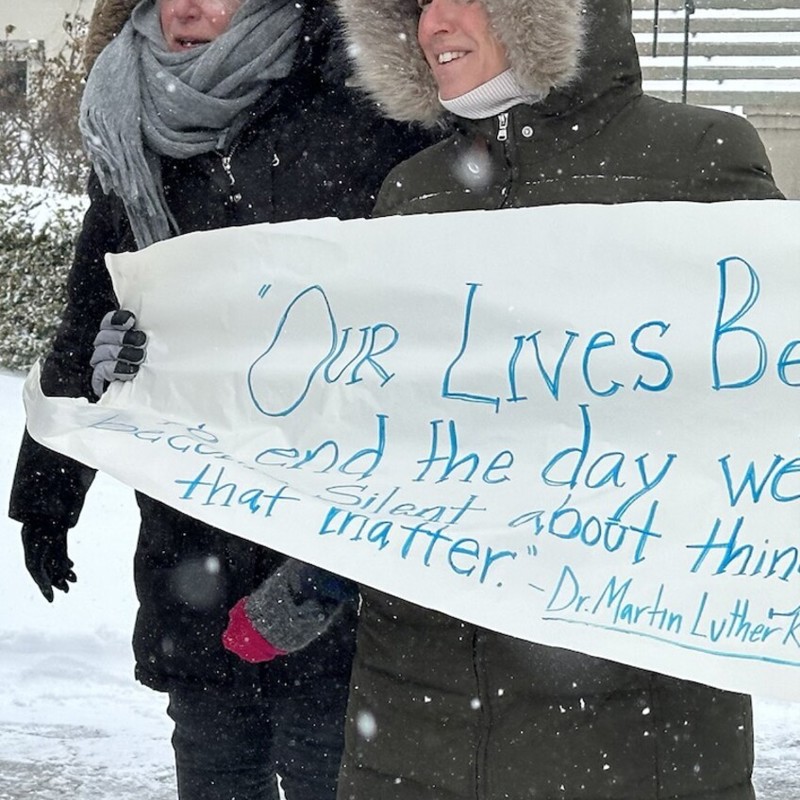 "OUR LIVES Be
to end the day we
become Silent about thin
that matter." -Dr. Martin Luther K